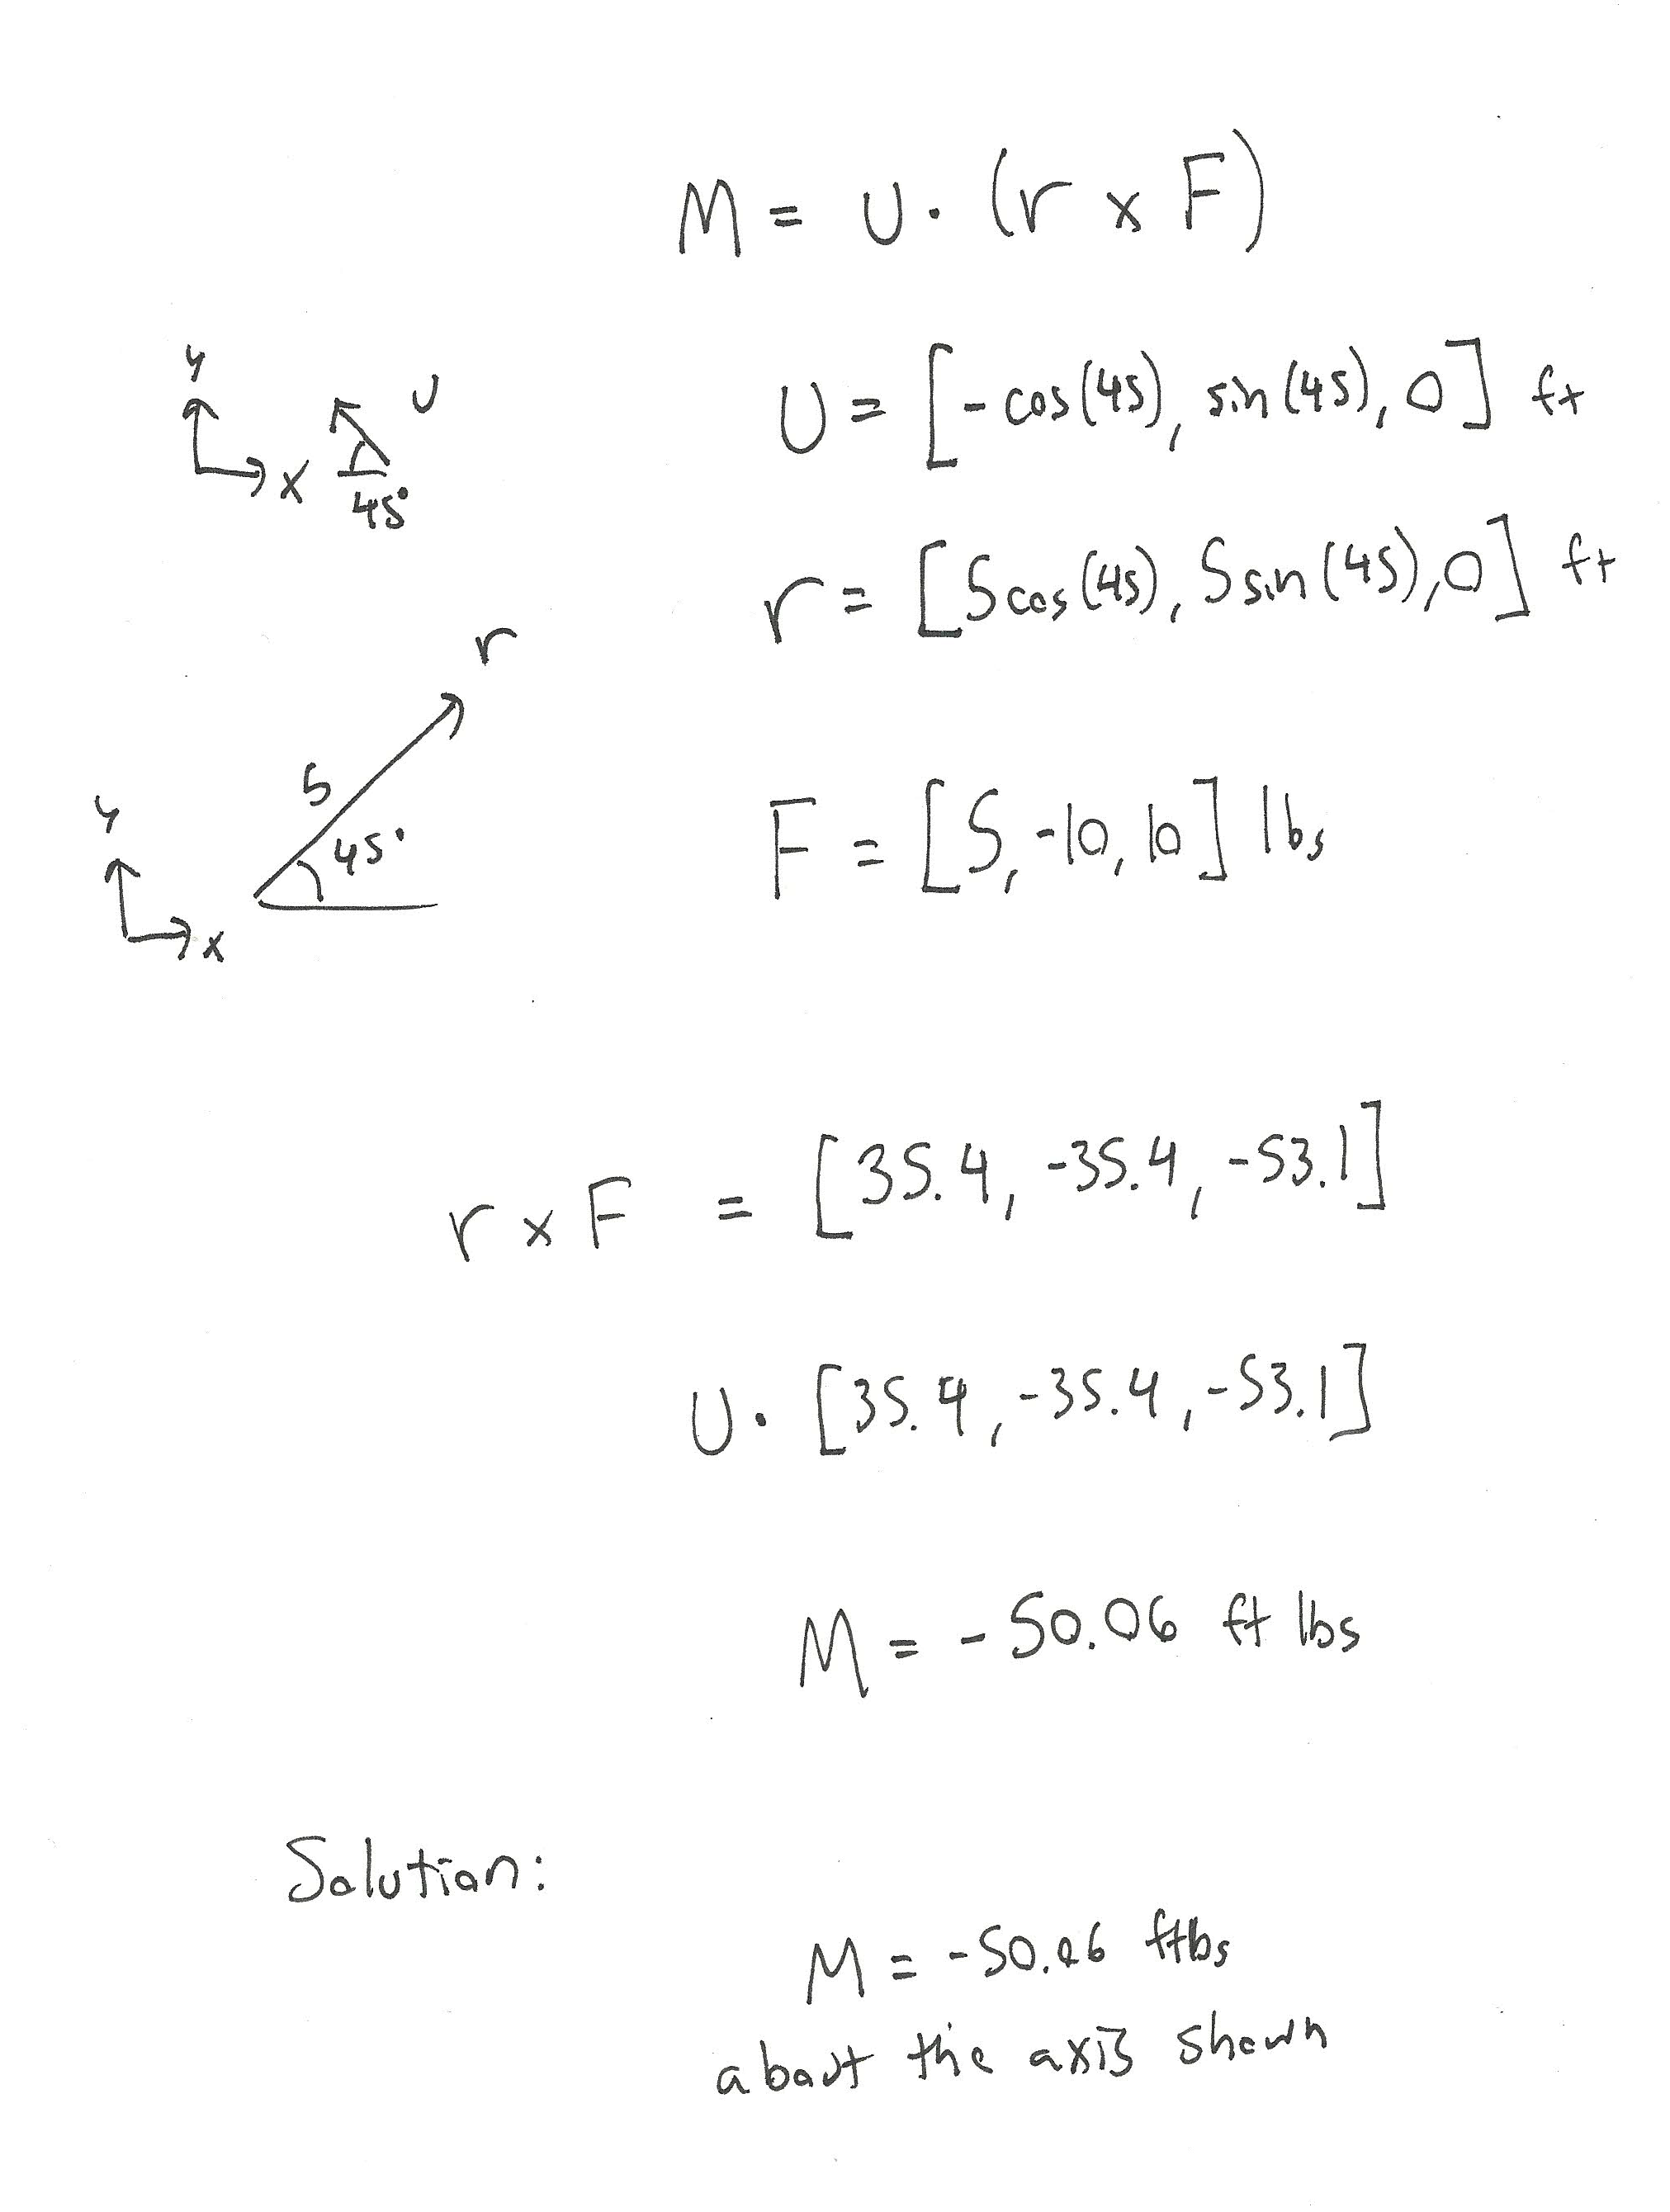 M = U · (r x F)
y
U
x
45°
U = [-cos(45), sin(45), 0] ft
r = [5cos(45), 5sin(45), 0] ft
r
5
45°
y
x
F = [5, -10, 10] lbs
r x F = [35.4, -35.4, -53.1]
U · [35.4, -35.4, -53.1]
M = -50.06 ft lbs
Solution:
M = -50.06 ftlbs
about the axis shown